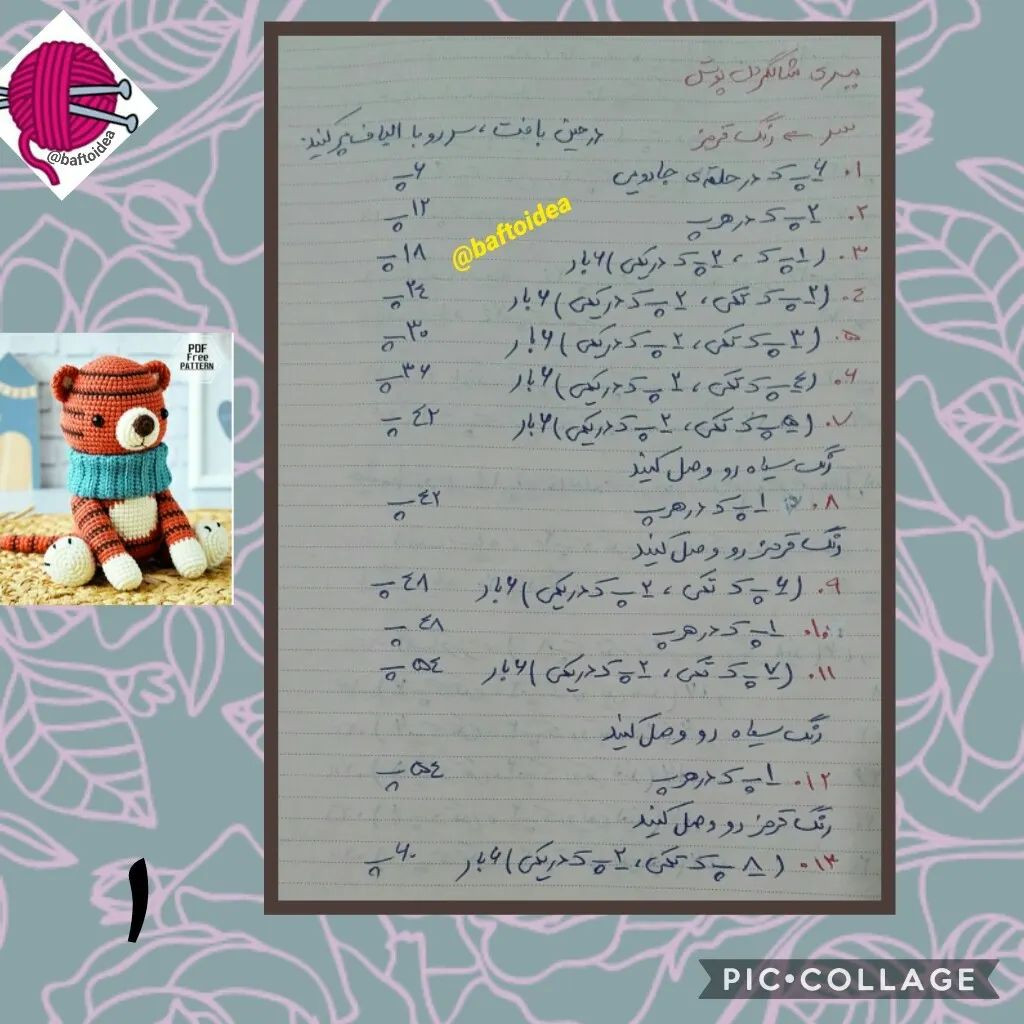 ببری شالگردن پوش
سر ← رنگ قرمز در حین بافت، سر رو با الیاف پر کنید.
۰۱ ۶پ ک در حلقه‌ی جادویی ۶پ
۰۲ ۲پ ک در هر پ ۱۲پ
۰۳ (۱پ ک ، ۲پ ک در یکی)۶بار ۱۸پ
۰۴ (۲پ ک تکی، ۲پ ک در یکی)۶بار ۲۴پ
۰۵ (۳پ ک تکی، ۲پ ک در یکی)۶بار ۳۰پ
۰۶ (۴پ ک تکی، ۲پ ک در یکی)۶بار ۳۶پ
۰۷ (۵پ ک تکی، ۲پ ک در یکی)۶بار ۴۲پ
رنگ سیاه رو وصل کنید
۰۸ ۱پ ک در هر پ ۴۲پ
رنگ قرمز رو وصل کنید
۰۹ (۶پ ک تکی، ۲پ ک در یکی)۶بار ۴۸پ
۰۱۰ ۱پ ک در هر پ ۴۸پ
۰۱۱ (۷پ ک تکی، ۲پ ک در یکی)۶بار ۵۴پ
رنگ سیاه رو وصل کنید
۰۱۲ ۱پ ک در هر پ ۵۴پ
رنگ قرمز رو وصل کنید
۰۱۳ (۸پ ک تکی، ۲پ ک در یکی)۶بار ۶۰پ
@baftoidea
@baftoidea
PDF
Free
PATTERN
۱
PIC•COLLAGE